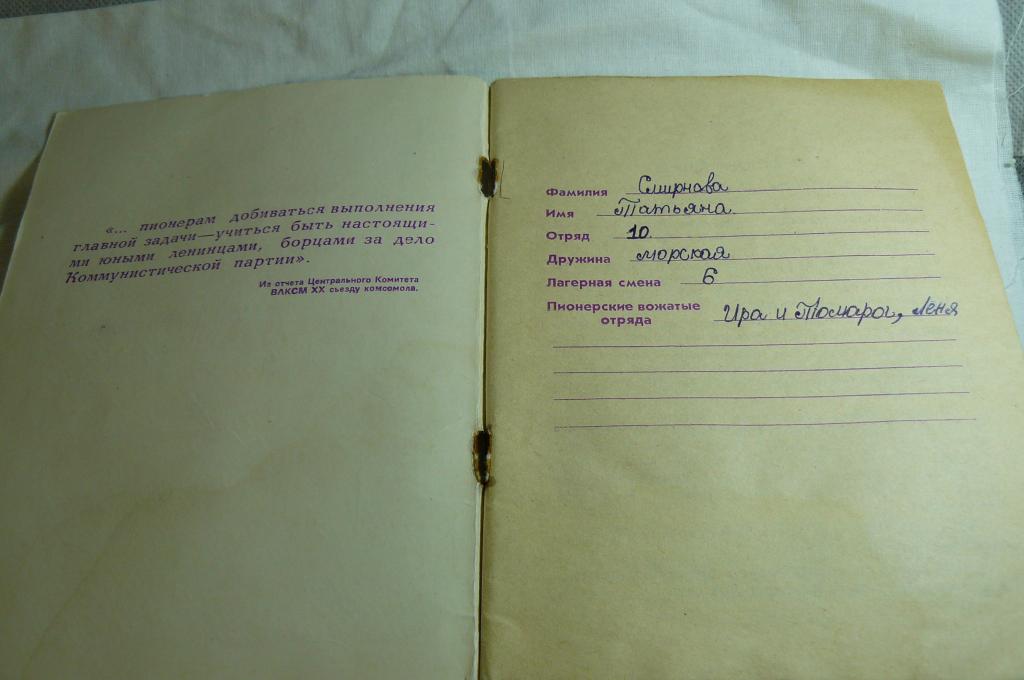 «... пионерам добиваться выполнения
главной задачи—учиться быть настоящи-
ми юными ленинцами, борцами за дело
Коммунистической партии».
Из отчета Центрального Комитета
ВЛКСМ XX съезду комсомола.
Фамилия Смирнова
Имя Татьяна.
Отряд 10.
Дружина морская
Лагерная смена 6
Пионерские вожатые Ира и Тамара, Лёня
отряда